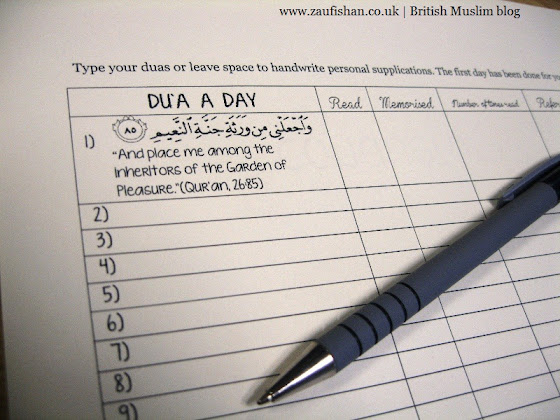 www.zaufishan.co.uk | British Muslim blog
Type your duas or leave space to handwrite personal supplications. The first day has been done for
DU'A A DAY Read Memorised Number of times read
1) ٨٥ وَاجْعَلْنِي مِن وَرَثَةِ جَنَّةِ النَّعِيمِ
"And place me among the
Inheritors of the Garden of
Pleasure."(Qur'an, 26:85)
2)
3)
4)
5)
6)
7)
8)
9)